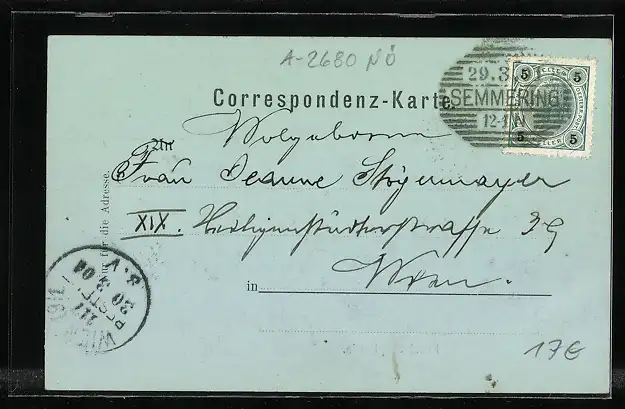 A-2680 NÖ
29.3
SEMMERING
12-1N
5 5
5 5
Correspondenz-Karte.
An
Wolgeborne
Frau Jeanne Stögermayer
XIX. Heiligenstädterstrasse 39
in Wien.
Nur für die Adresse.
WIEN
19/1
BESTELLT
30 3 04
8.V
17€